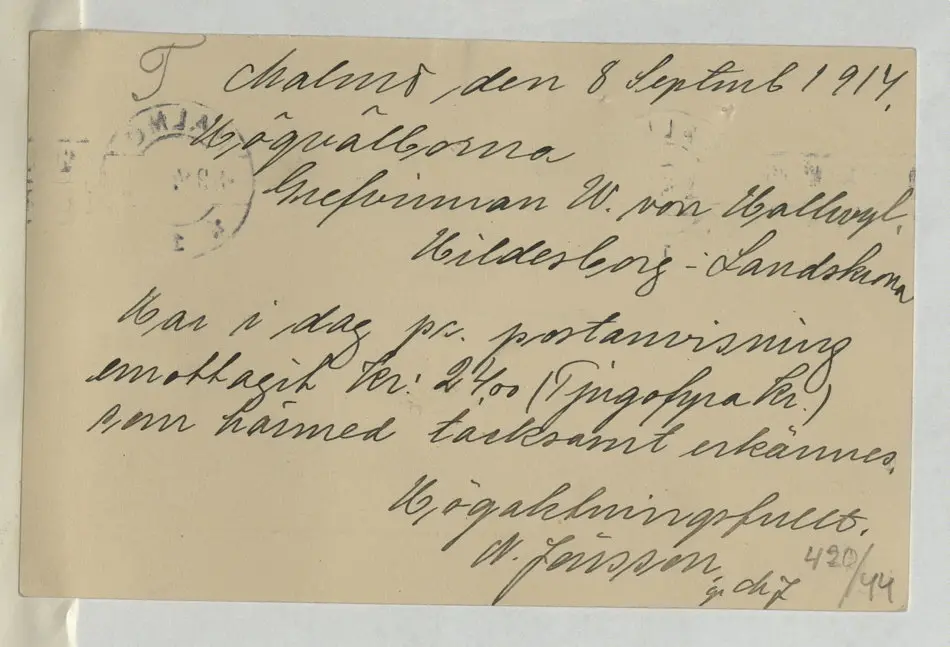 T
Malmö den 8 Septmb 1914.
Högvälborna
Grefvinnan W. von Hallwyl.
Hildesborg - Landskrona
Har i dag pr. postanvisning
emottagit kr: 24,00 (Tjugofyra kr.)
som härmed tacksamt erkännes.
Högaktningsfullt.
N. Jönsson
420/44